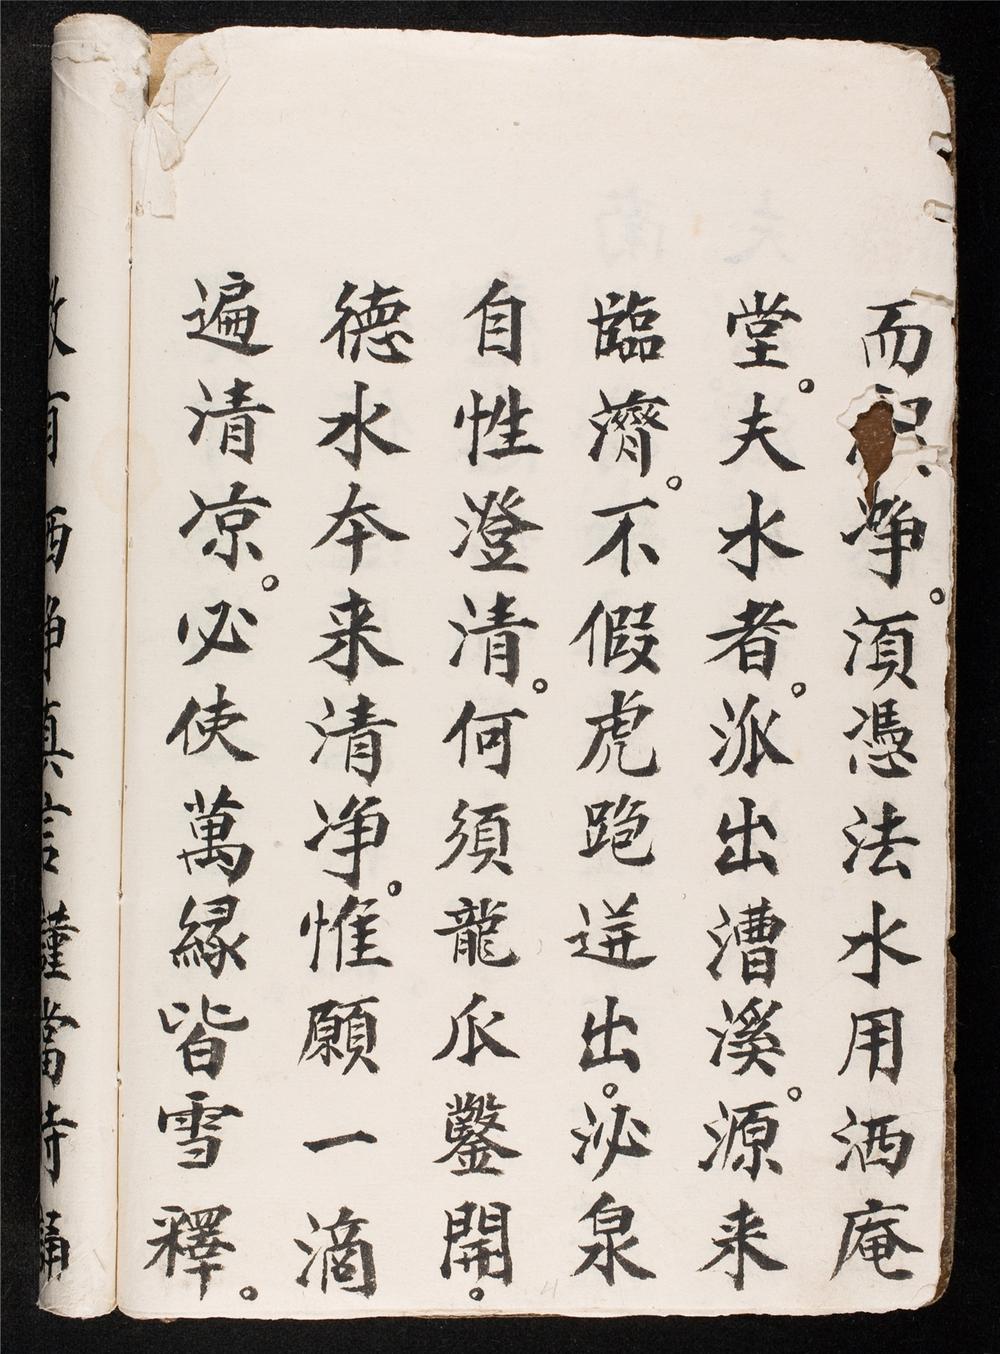 而淨。湏憑法水用洒庵
堂。夫水者。派出漕溪。源来
臨濟。不假虎跑迸出。泌泉
自性澄清。何須龍爪鑿開。
德水本来清净。惟願一滴
遍清凉。必使萬縁皆雪釋。